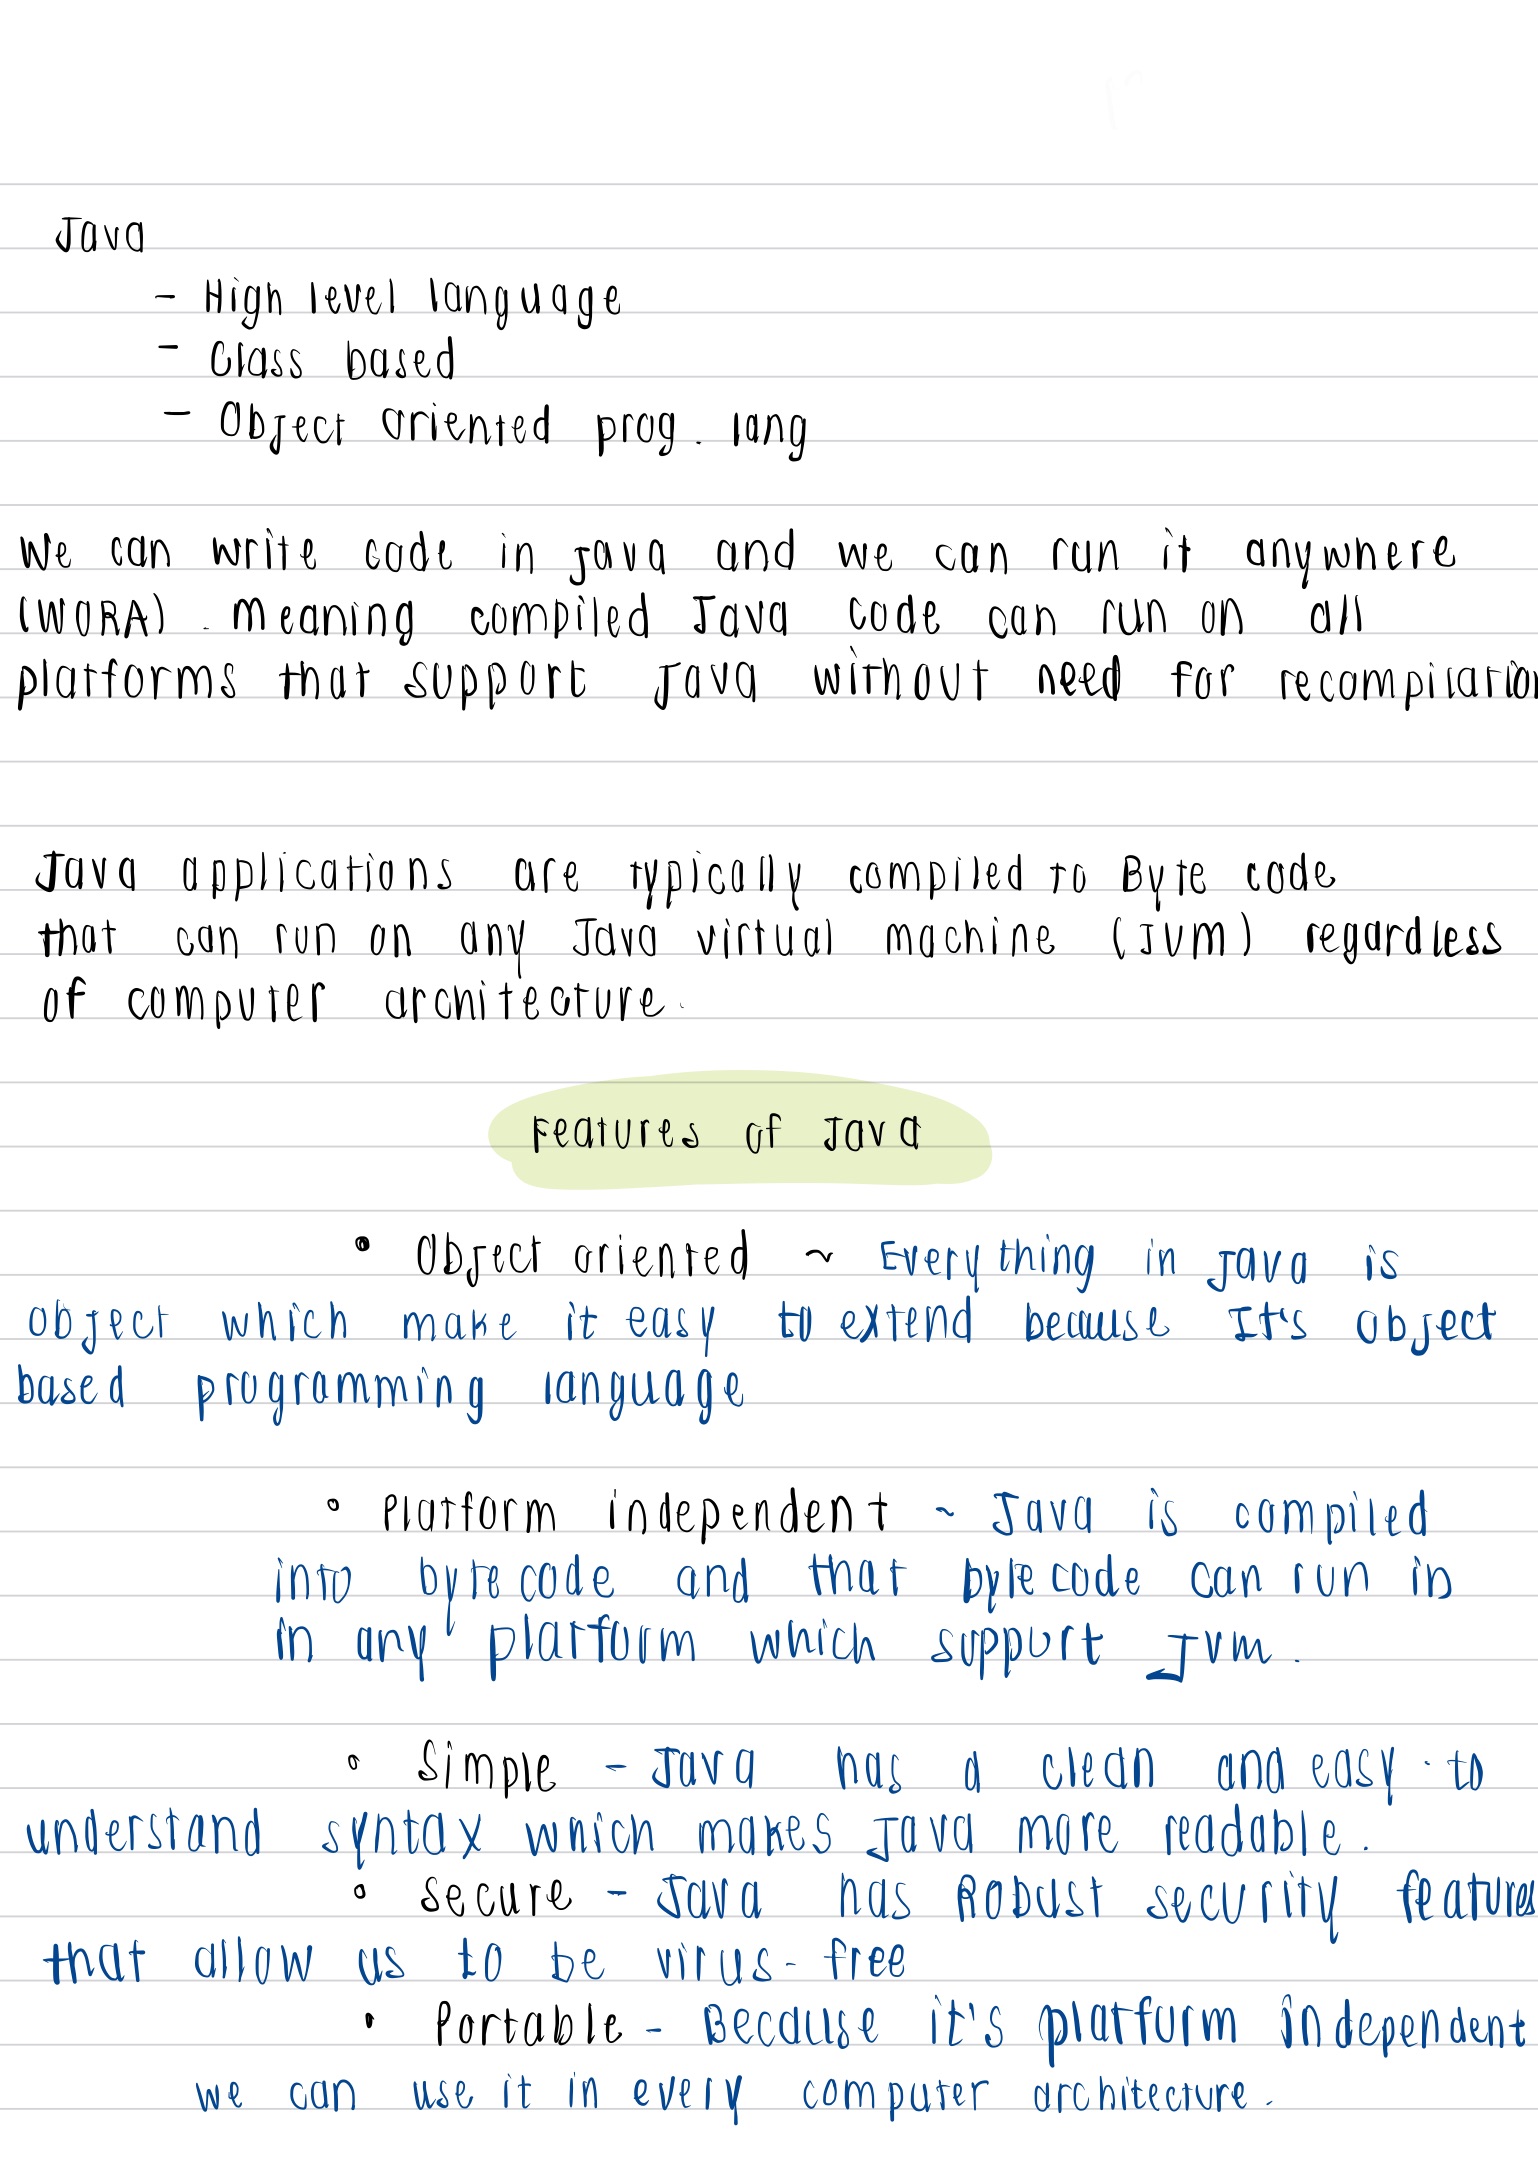 Java
- High level language
- Class based
- Object oriented prog. lang
We can write code in java and we can run it anywhere
(WORA). Meaning compiled Java code can run on all
platforms that support Java without need for recompilation
Java applications are typically compiled to Byte code
that can run on any Java virtual machine (JVM) regardless
of computer architecture.
Features of Java
• Object oriented ~ Every thing in java is
object which make it easy to extend because It's object
based programming language
• Platform independent ~ Java is compiled
into byte code and that byte code can run in
in any platform which support JVM.
• Simple - Java has a clean and easy-to
understand syntax which makes Java more readable.
• Secure - Java has Robust security features
that allow us to be virus-free
• Portable - Because it's platform independent
we can use it in every computer architecture.